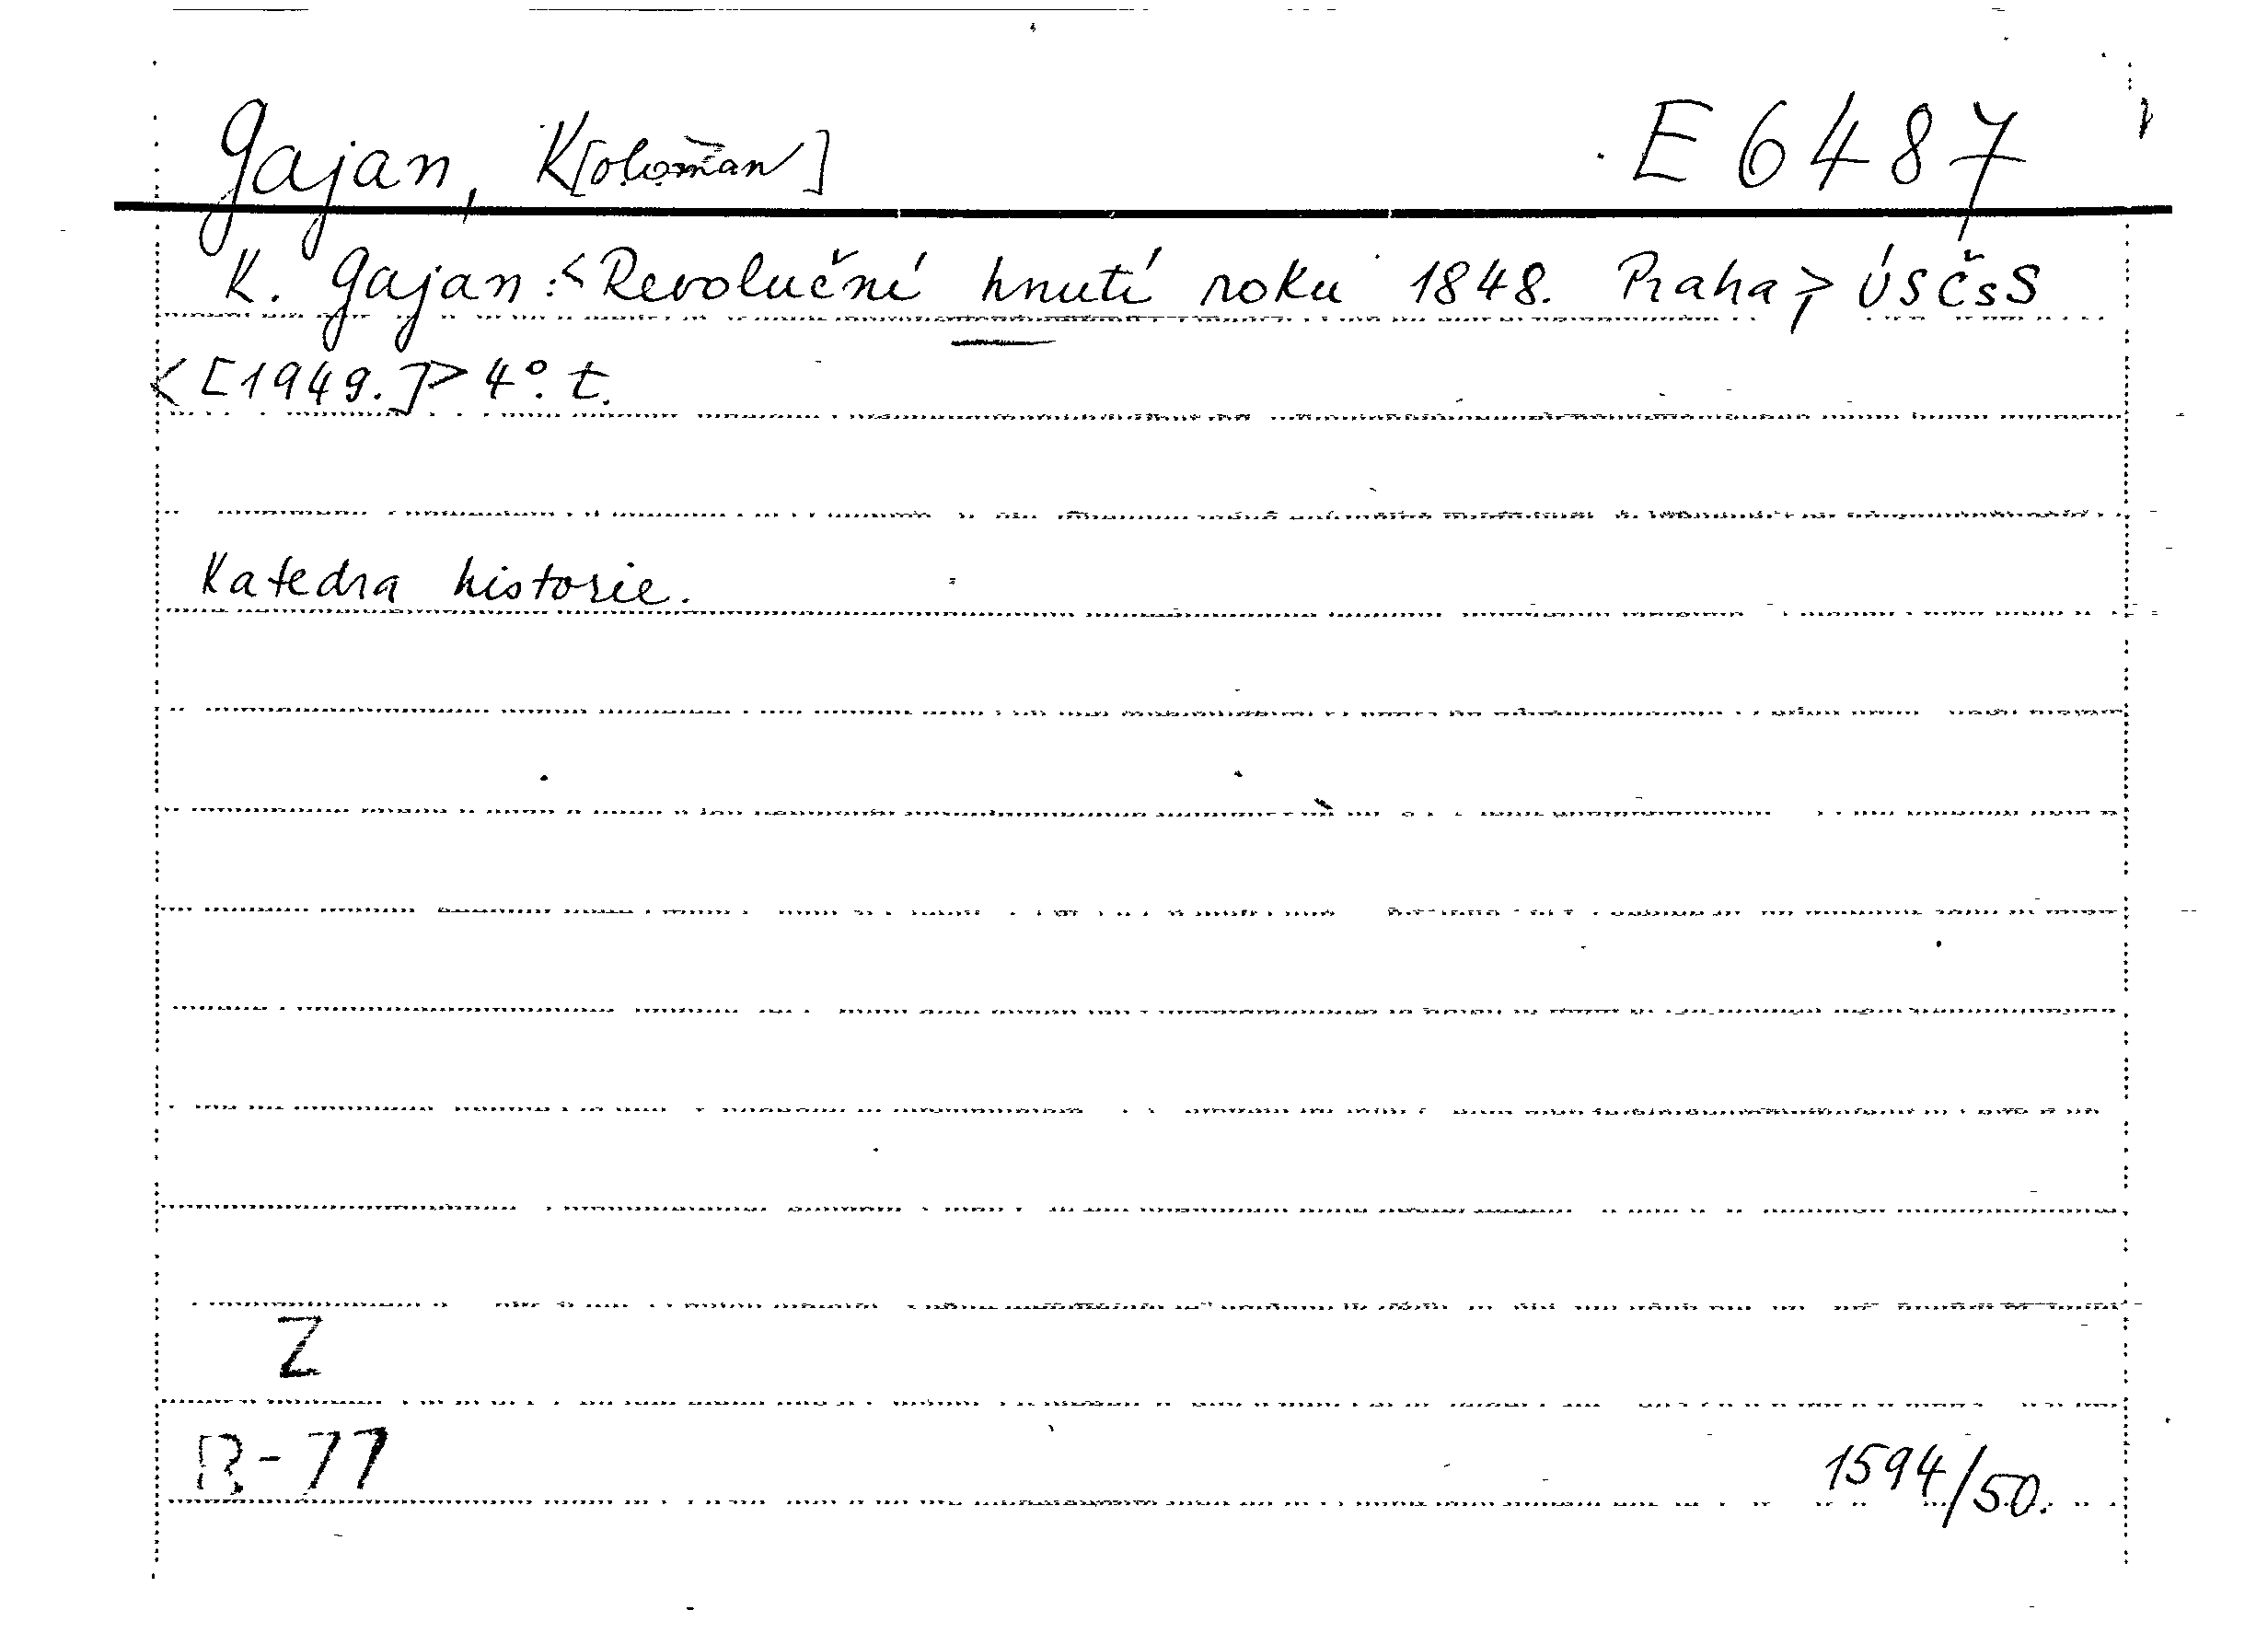 Gajan, K[oloman] E 6487
K. Gajan: <Revoluční hnutí roku 1848. Praha> ÚSČsS
<[1949.]> 4°. t.
Katedra historie.
Z
B-77
1594/50.